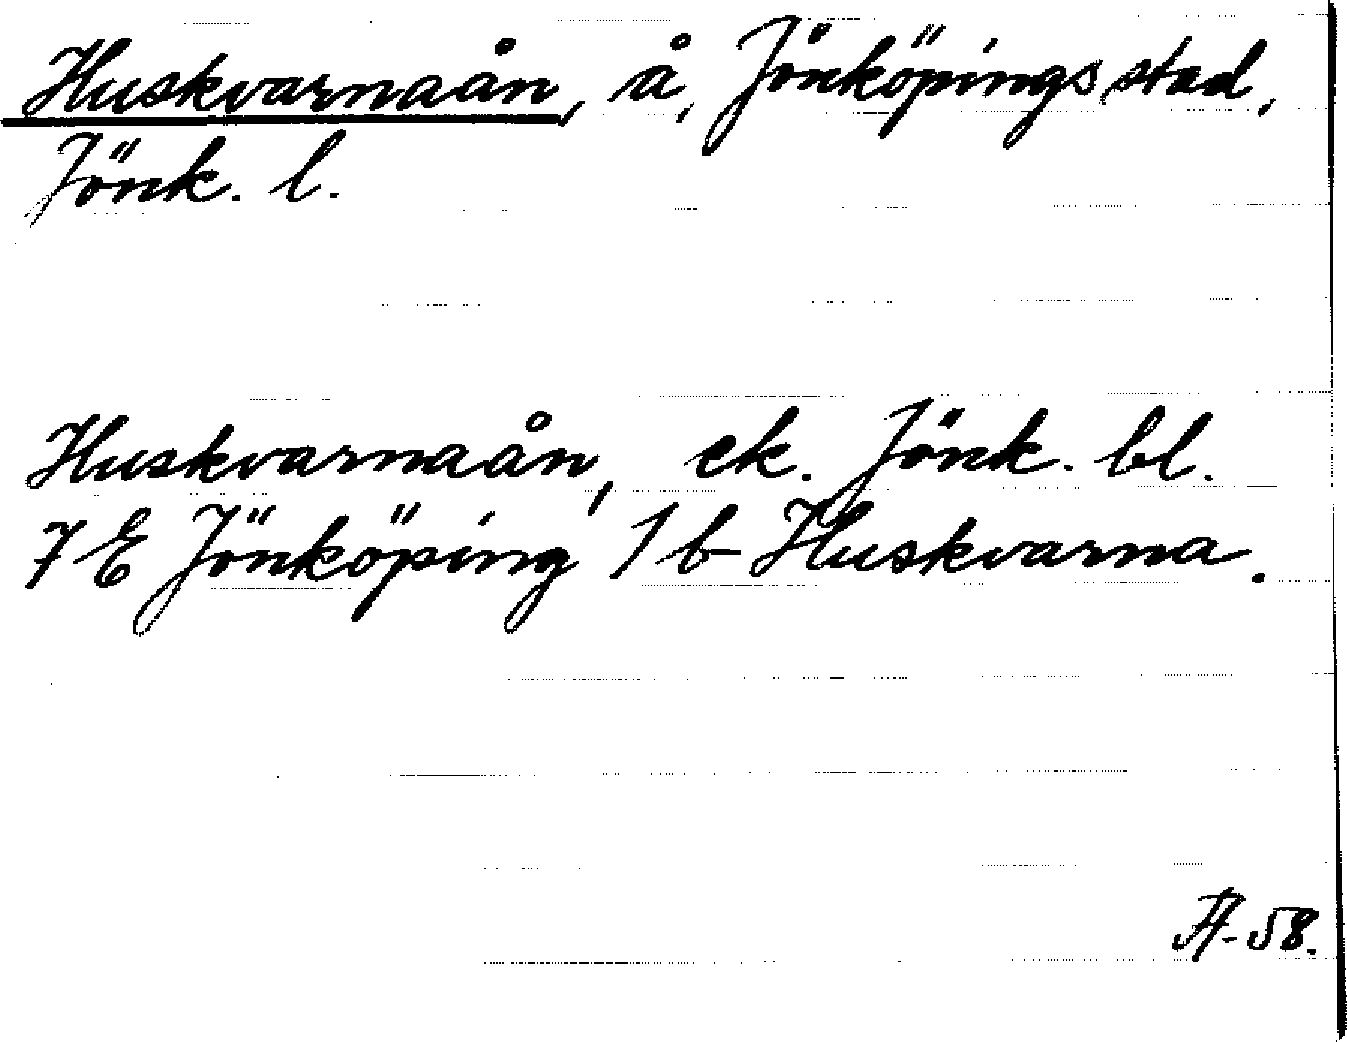 Huskvarnaån, å, Jönköpings stad,
Jönk. l.
Huskvarnaån, ek. Jönk. bl.
7 E Jönköping 1 b Huskvarna.
-58.